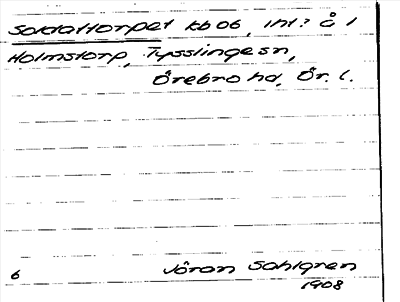 Soldattorpet kb 06, int? å 1
Holmstorp, Tysslinge sn,
Örebro hd, Ör. l.
6 Jöran Sahlgren
1908